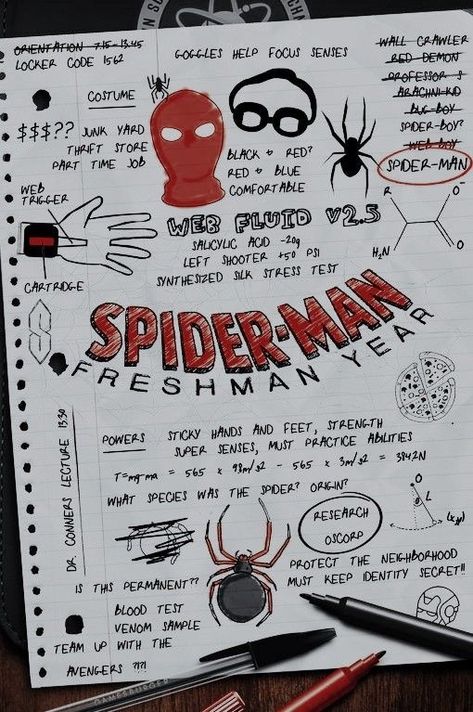 ORIENTATION 7.15 - 13.45
LOCKER CODE 1562
GOGGLES HELP FOCUS SENSES
WALL CRAWLER
RED DEMON
PROFESSOR S
ARACHNI-KID
BUG-BOY
SPIDER-BOY?
WEB-BOY
SPIDER-MAN
COSTUME
$$$?? JUNK YARD
THRIFT STORE
PART TIME JOB
BLACK + RED?
RED + BLUE
COMFORTABLE
WEB
TRIGGER
CARTRIDGE
WEB FLUID V2.5
SALICYLIC ACID -20g
LEFT SHOOTER +50 PSI
SYNTHESIZED SILK STRESS TEST
R
O
O
H₂N
SPIDER-MAN
FRESHMAN YEAR
DR. CONNERS LECTURE 13:30
POWERS
STICKY HANDS AND FEET, STRENGTH
SUPER SENSES, MUST PRACTICE ABILITIES
WHAT SPECIES WAS THE SPIDER? ORIGIN?
RESEARCH
OSCORP
O
L
PROTECT THE NEIGHBORHOOD
MUST KEEP IDENTITY SECRET!!
IS THIS PERMANENT??
BLOOD TEST
VENOM SAMPLE
TEAM UP WITH THE
AVENGERS ?!?!